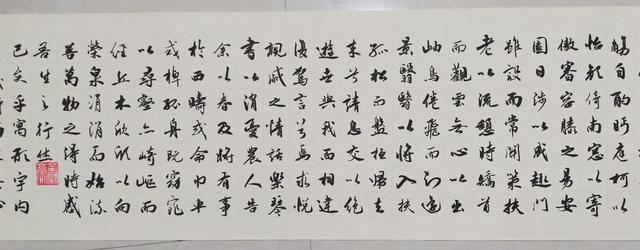 觴自酌眄庭柯以
怡顏倚南窗以寄
傲審容膝之易安
園日涉以成趣門
雖設而常關策扶
老以流憩時矯首
而觀雲無心以出
岫鳥倦飛而知還
景翳翳以將入扶
孤松而盤桓歸去
来兮請息交以絕
遊世與我而相違
復駕言兮焉求悅
親戚之情話樂琴
書以消憂農人告
余以春及將有事
於西疇或命巾車
或棹孤舟既窈窕
以尋壑亦崎嶇而
經丘木欣欣以向
榮泉涓涓而始流
善萬物之得時感
吾生之行休
已矣乎寓形宇内